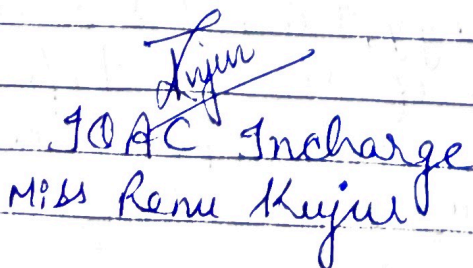 Kujur
IQAC Incharge
Miss Renu Kujur